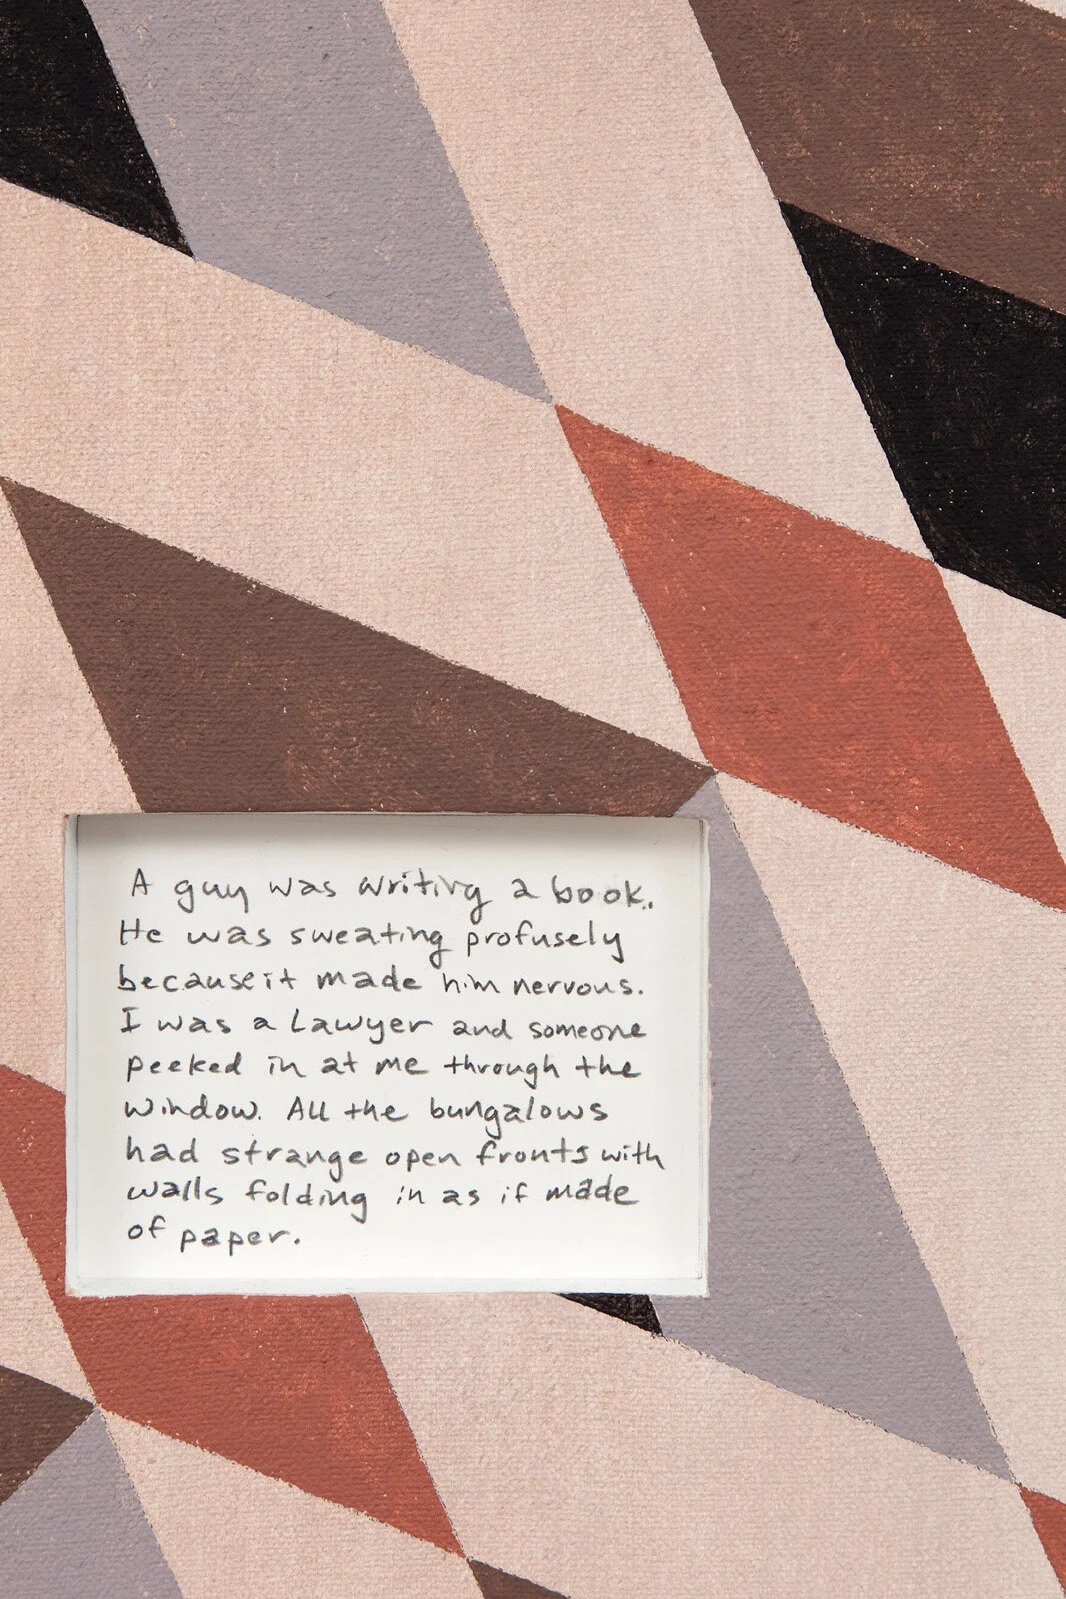 A guy was writing a book.
He was sweating profusely
because it made him nervous.
I was a Lawyer and someone
peeked in at me through the
window. All the bungalows
had strange open fronts with
walls folding in as if made
of paper.